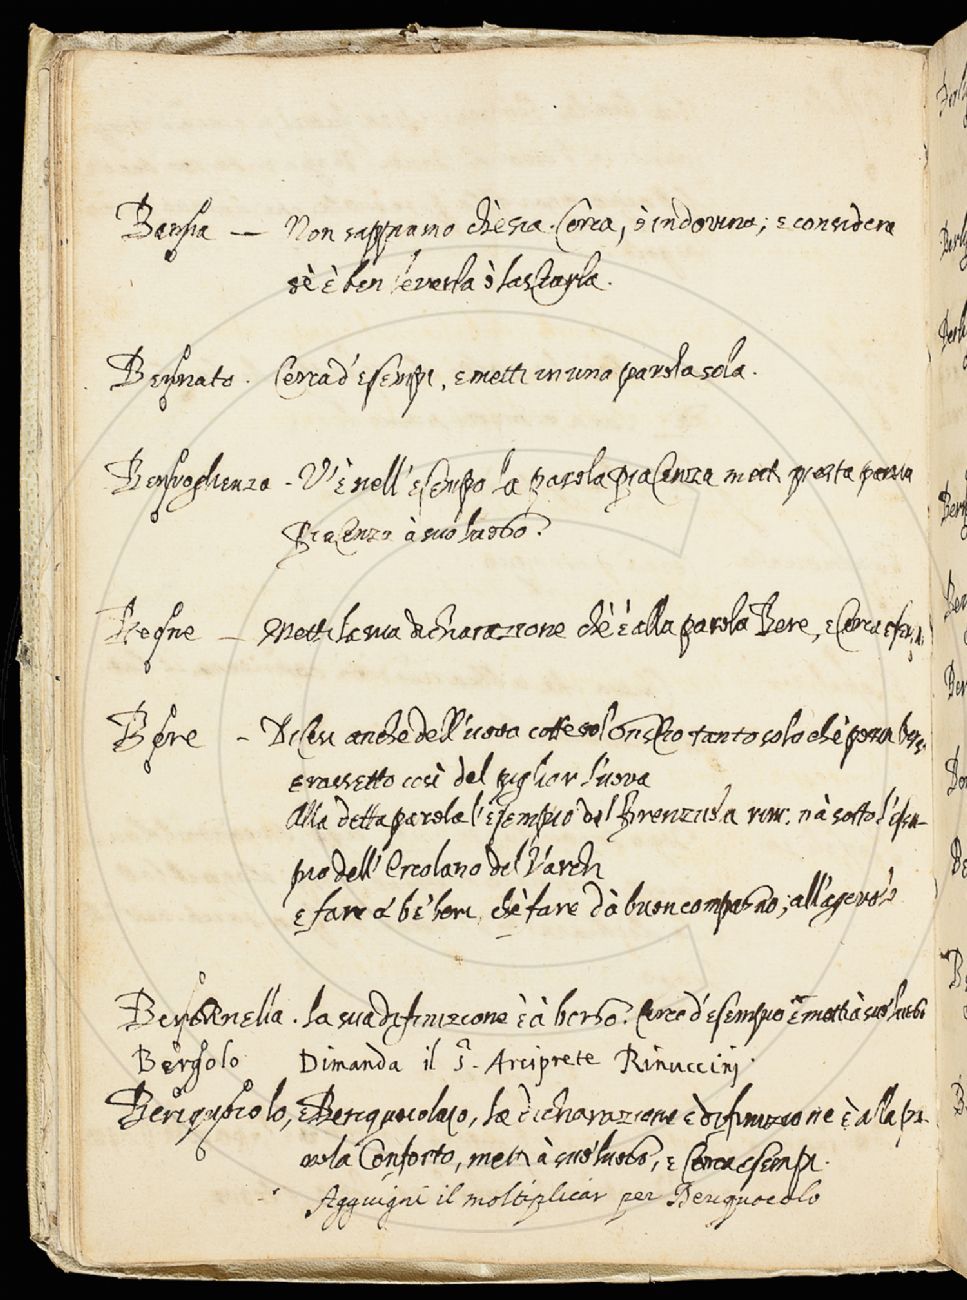 Bensia — Non sappiamo chè sia. Cerca, ò indovina; e considera
sè è ben leverla ò lasciarla.
Bennato. Cerca d'esempi, e metti in una parola sola.
Benvoglienza - V'è nell'esempio la parola piacenza metti questa parola
piacenza à suo luogo.
— Metti la sua dichiarazione chè è alla parola Bere, e cerca esempi
Bere - Dicesi anche dell'uova cotte sol tanto solo chè possa bersi
e rassetto così del pigliar l'uova
Alla detta parola l'esempio del Firenzuola và sotto l'esem-
pio dell'Ercolano del Varchi
e fare a bè bere, chè fare dà buon compagno; all'
. la sua difinizione è à borgo. Cerca d'esempio e metti à suo luogo
Bergolo Dimanda il S. Arciprete Rinuccini.
Berigucolo, e Bericuocolaio, la dichiarazione e difinizione è alla pa-
rola Conforto, metti à suo luogo, e cerca esempi.
Aggiugni il moltiplicar per Bericuocolo